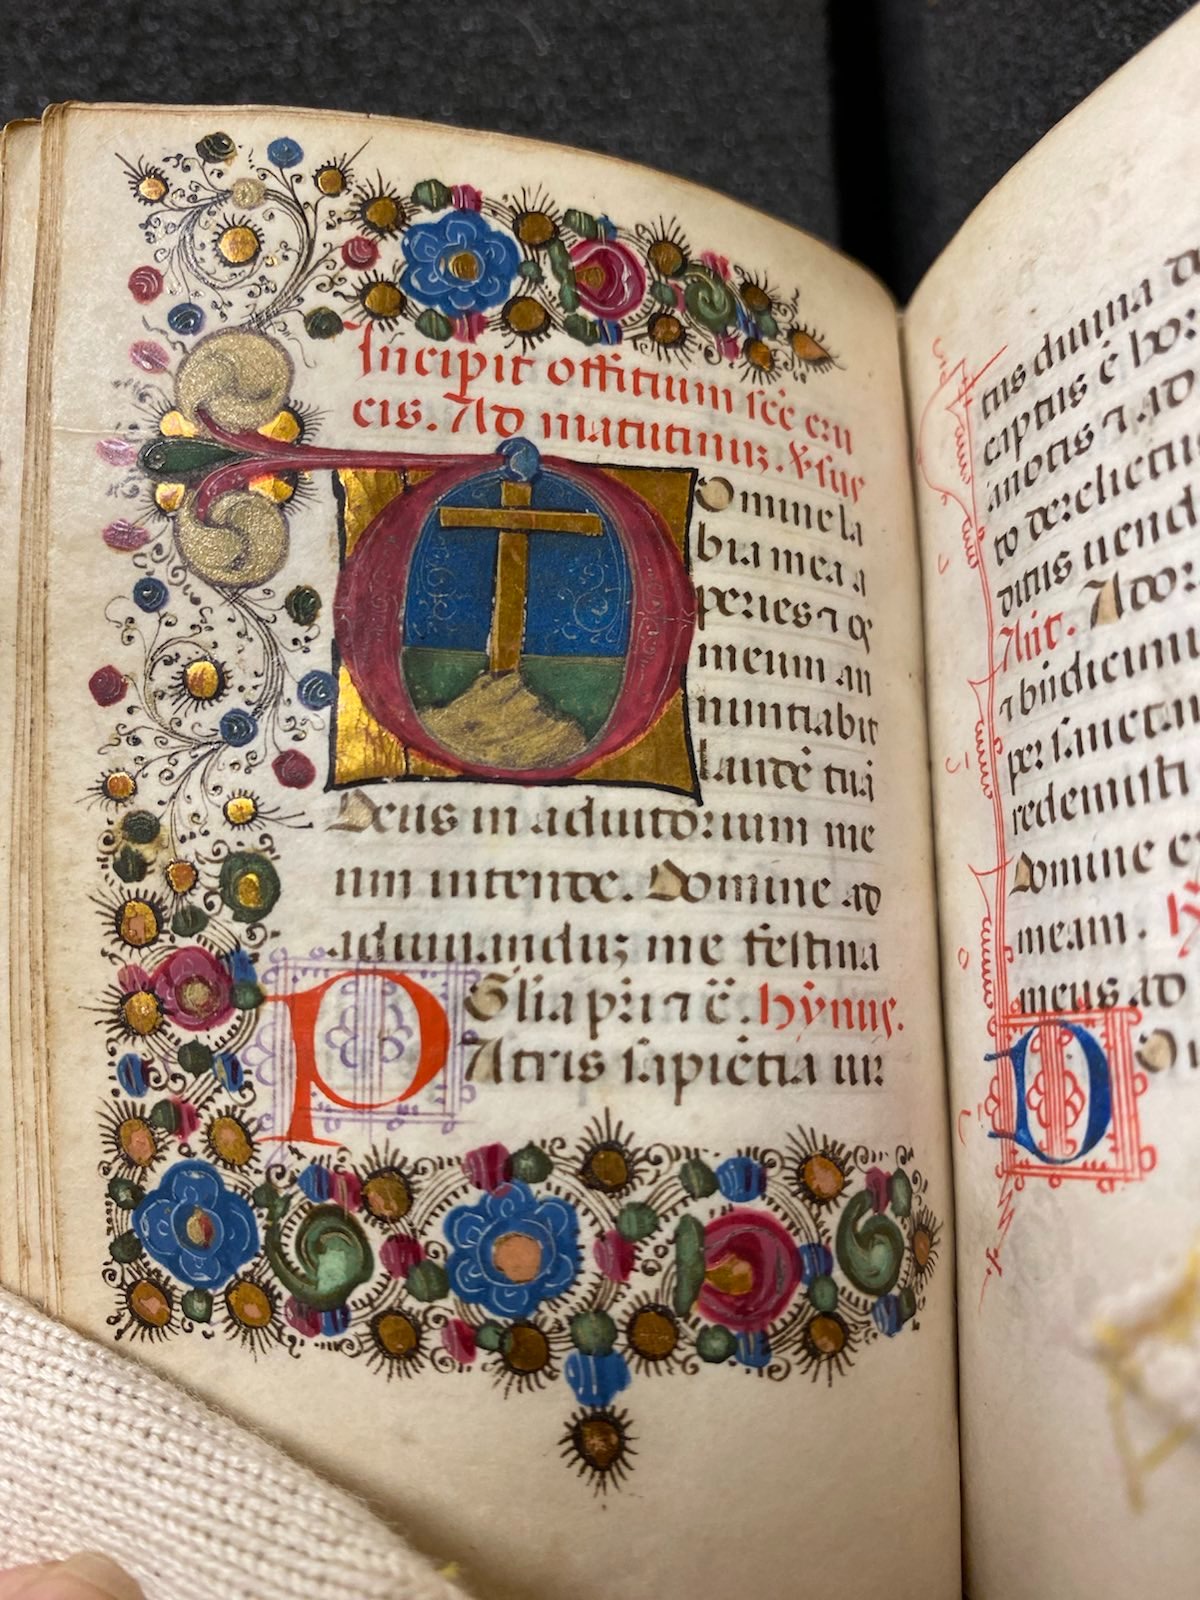 Incipit offitium scē cru
cis. Ad matutinuꝫ. ꝟsus
Domine la
bia mea a
peries ⁊ os
meum an
nuntiabit
laudē tuā
Deus in adiutorium me
um intende. Domine ad
adiuuanduꝫ me festina
Glia pri ⁊ c̄. hȳnus.
PAtris sapiētia
tus diuina
captus ē hor
⁊ ad
to derelictus
ditus
Ant. Ador
⁊ bn̄dicimus
per sanctam
redemisti
Domine
meam.
meus ad
D